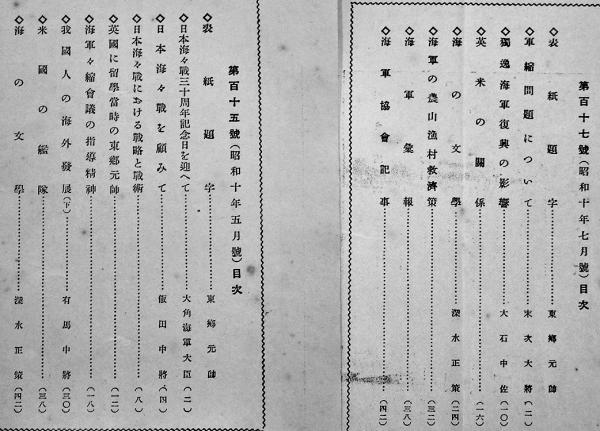 第百十七號（昭和十年七月號）目次
◇表紙題字……東鄕元帥
◇軍縮問題について……末次大將（二）
◇獨逸海軍復興の影響……大石中佐（一〇）
◇英米の關係……（一六）
◇海の文學……深水正策（二四）
◇海軍の農山漁村救濟策……（三二）
◇海軍彙報……（三八）
◇海軍協會記事……（四二）
第百十五號（昭和十年五月號）目次
◇表紙題字……東鄕元帥
◇日本海々戰三十周年記念日を迎へて……大角海軍大臣（二）
◇日本海々戰を顧みて……飯田中將（四）
◇日本海々戰における戰略と戰術……（八）
◇英國に留學當時の東鄕元帥……（一二）
◇海軍々縮會議の指導精神……（一八）
◇我國人の海外發展（下）……有馬中將（三〇）
◇米國の艦隊……（三八）
◇海の文學……深水正策（四二）